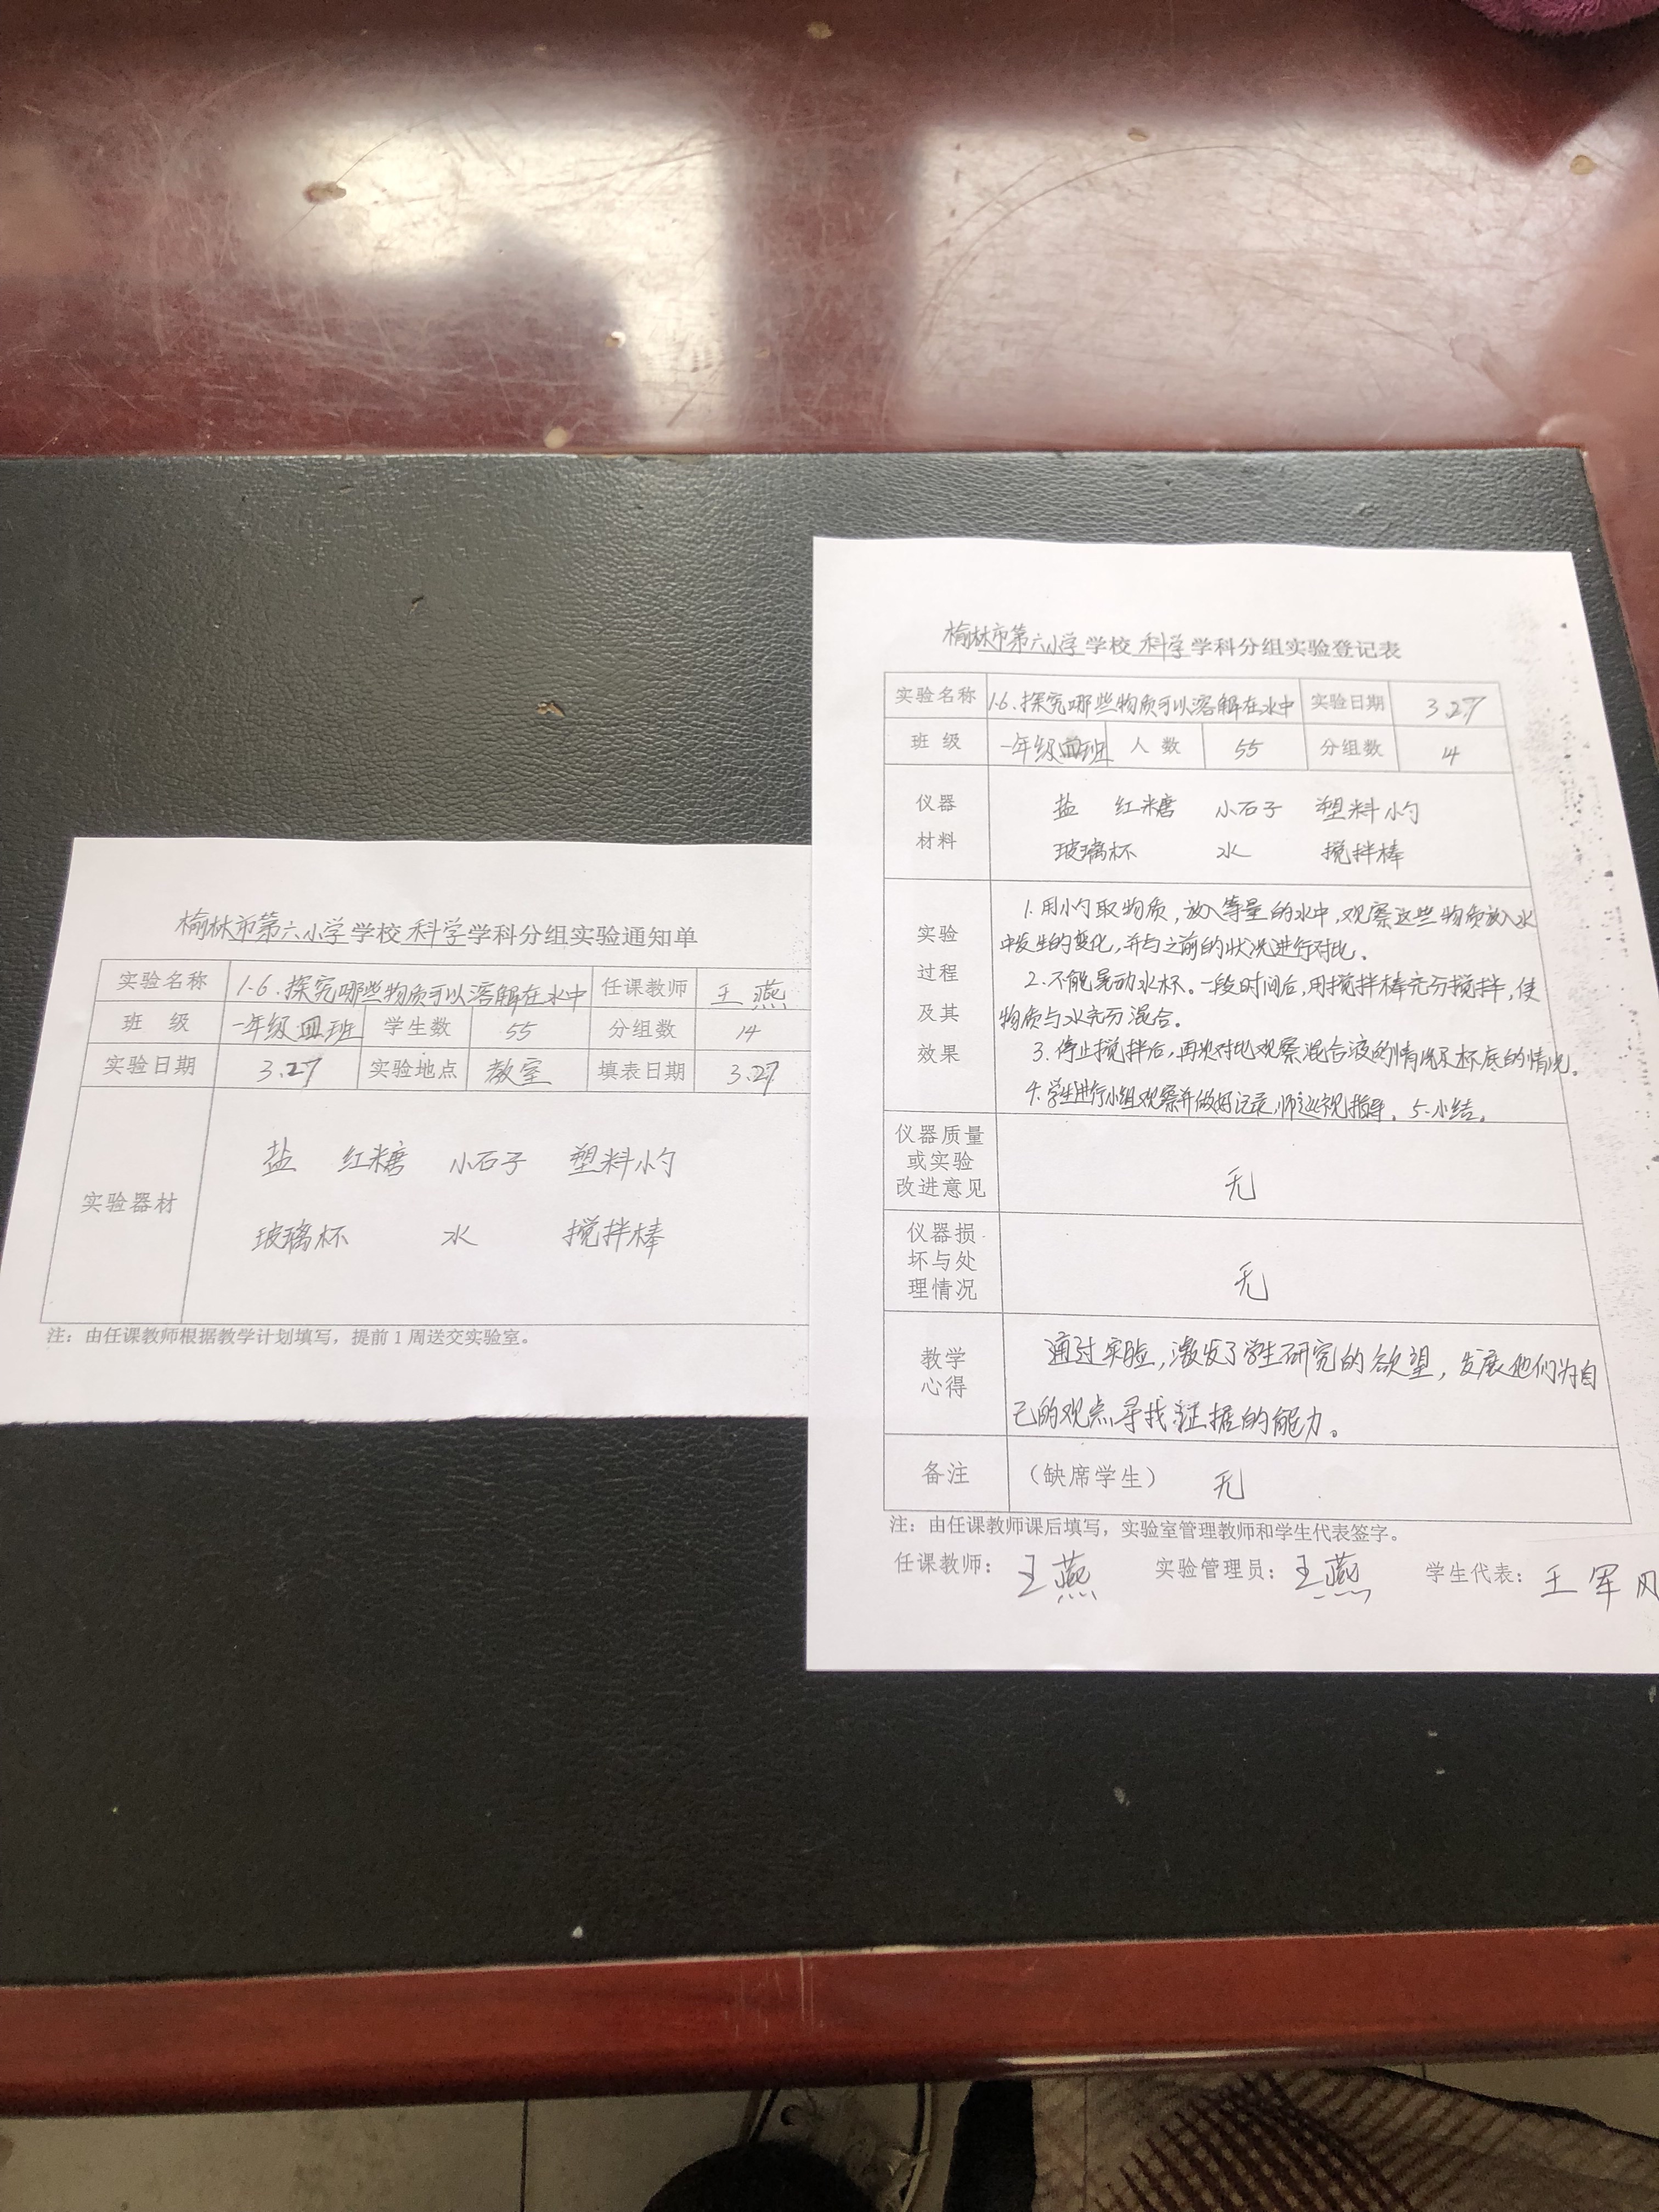 榆林市第六小学学校科学学科分组实验通知单
实验名称 1.6.探究哪些物质可以溶解在水中 任课教师 王燕
班 级 一年级四班 学生数 55 分组数 14
实验日期 3.27 实验地点 教室 填表日期 3.27
实验器材
盐 红糖 小石子 塑料小勺
玻璃杯 水 搅拌棒
注：由任课教师根据教学计划填写，提前1周送交实验室。
榆林市第六小学学校科学学科分组实验登记表
实验名称 1.6.探究哪些物质可以溶解在水中 实验日期 3.27
班 级 一年级四班 人 数 55 分组数 14
仪器
材料
盐 红糖 小石子 塑料小勺
玻璃杯 水 搅拌棒
实验
过程
及其
效果
1.用小勺取物质，放入等量的水中，观察这些物质放入水
中发生的变化，并与之前的状况进行对比。
2.不能晃动水杯。一段时间后，用搅拌棒充分搅拌，使
物质与水充分混合。
3.停止搅拌后，再次对比观察混合液的情况及杯底的情况。
4.学生进行小组观察并做好记录，师巡视指导。5.小结。
仪器质量
或实验
改进意见
无
仪器损
坏与处
理情况
无
教学
心得
通过实验，激发了学生研究的欲望，发展他们为自
己的观点寻找证据的能力。
备注 （缺席学生） 无
注：由任课教师课后填写，实验室管理教师和学生代表签字。
任课教师： 王燕 实验管理员： 王燕 学生代表： 王军